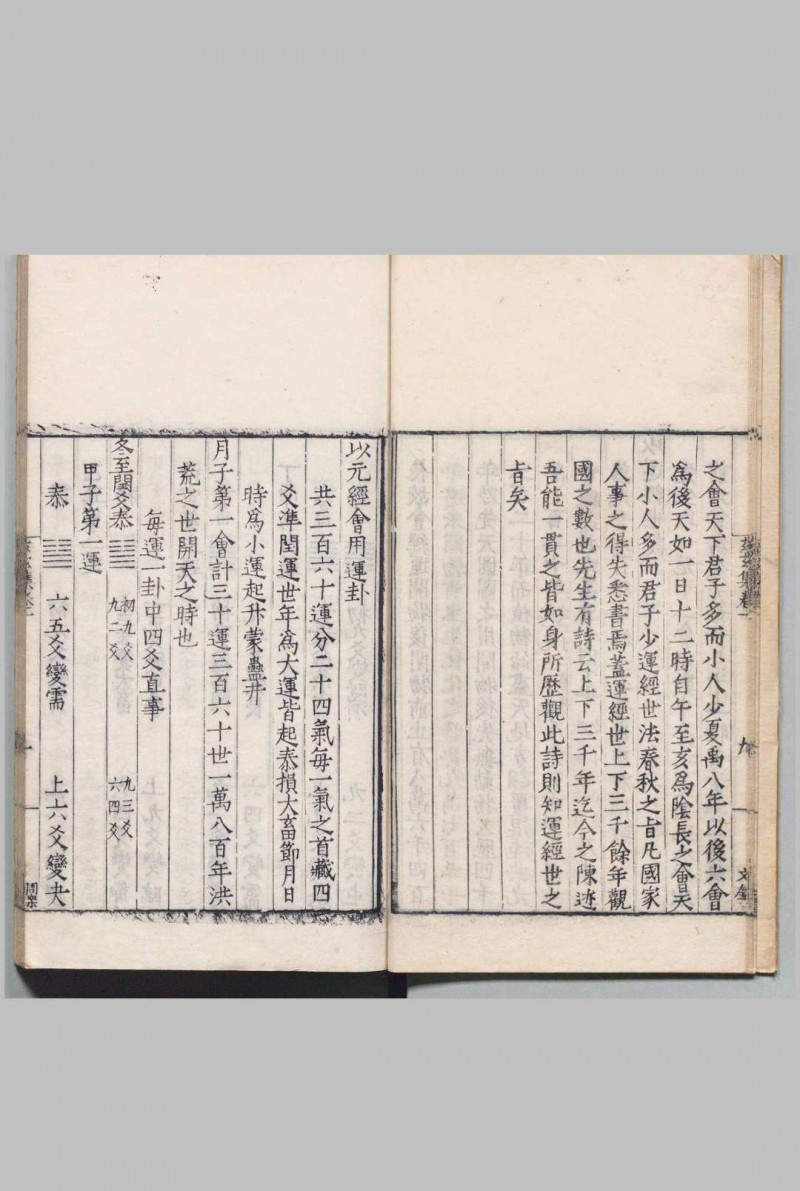 之會天下君子多而小人少夏禹八年以後六會
爲後天如一日十二時自午至亥爲陰長之會天
下小人多而君子少運經世法春秋之旨凡國家
人事之得失悉書焉蓋運經世上下三千餘年觀
國之數也先生有詩云上下三千年迄今之陳迹
吾能一貫之皆如身所歷觀此詩則知運經世之
旨矣
以元經會用運卦
共三百六十運分二十四氣每一氣之首藏四
爻準閏運世年爲大運皆起泰損大畜節月日
時爲小運起升蒙蠱井
月子第一會計三十運三百六十世一萬八百年洪
荒之世開天之時也
每運一卦中四爻直事
冬至閏爻泰䷊ 初九爻 九二爻 九三爻 六四爻
甲子第一運
泰 ䷊ 六五爻變需 上六爻變夬